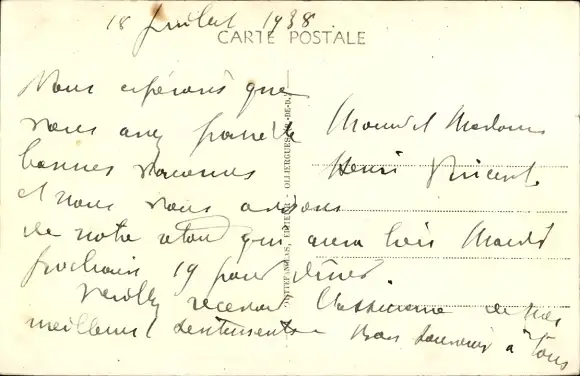 18 Juillet 1938
CARTE POSTALE
Nous espérons que
vous avez passé de
bonnes vacances
et nous vous avisons
de notre retour qui aura lieu Mardi
prochain 19 pour dîner
Veuillez recevoir l'assurance de nos
meilleurs sentiments Bon souvenir à tous
Monsieur et Madame
Henri Vincent
EDITEUR - OLLIERGUES (P.-DE-D.)